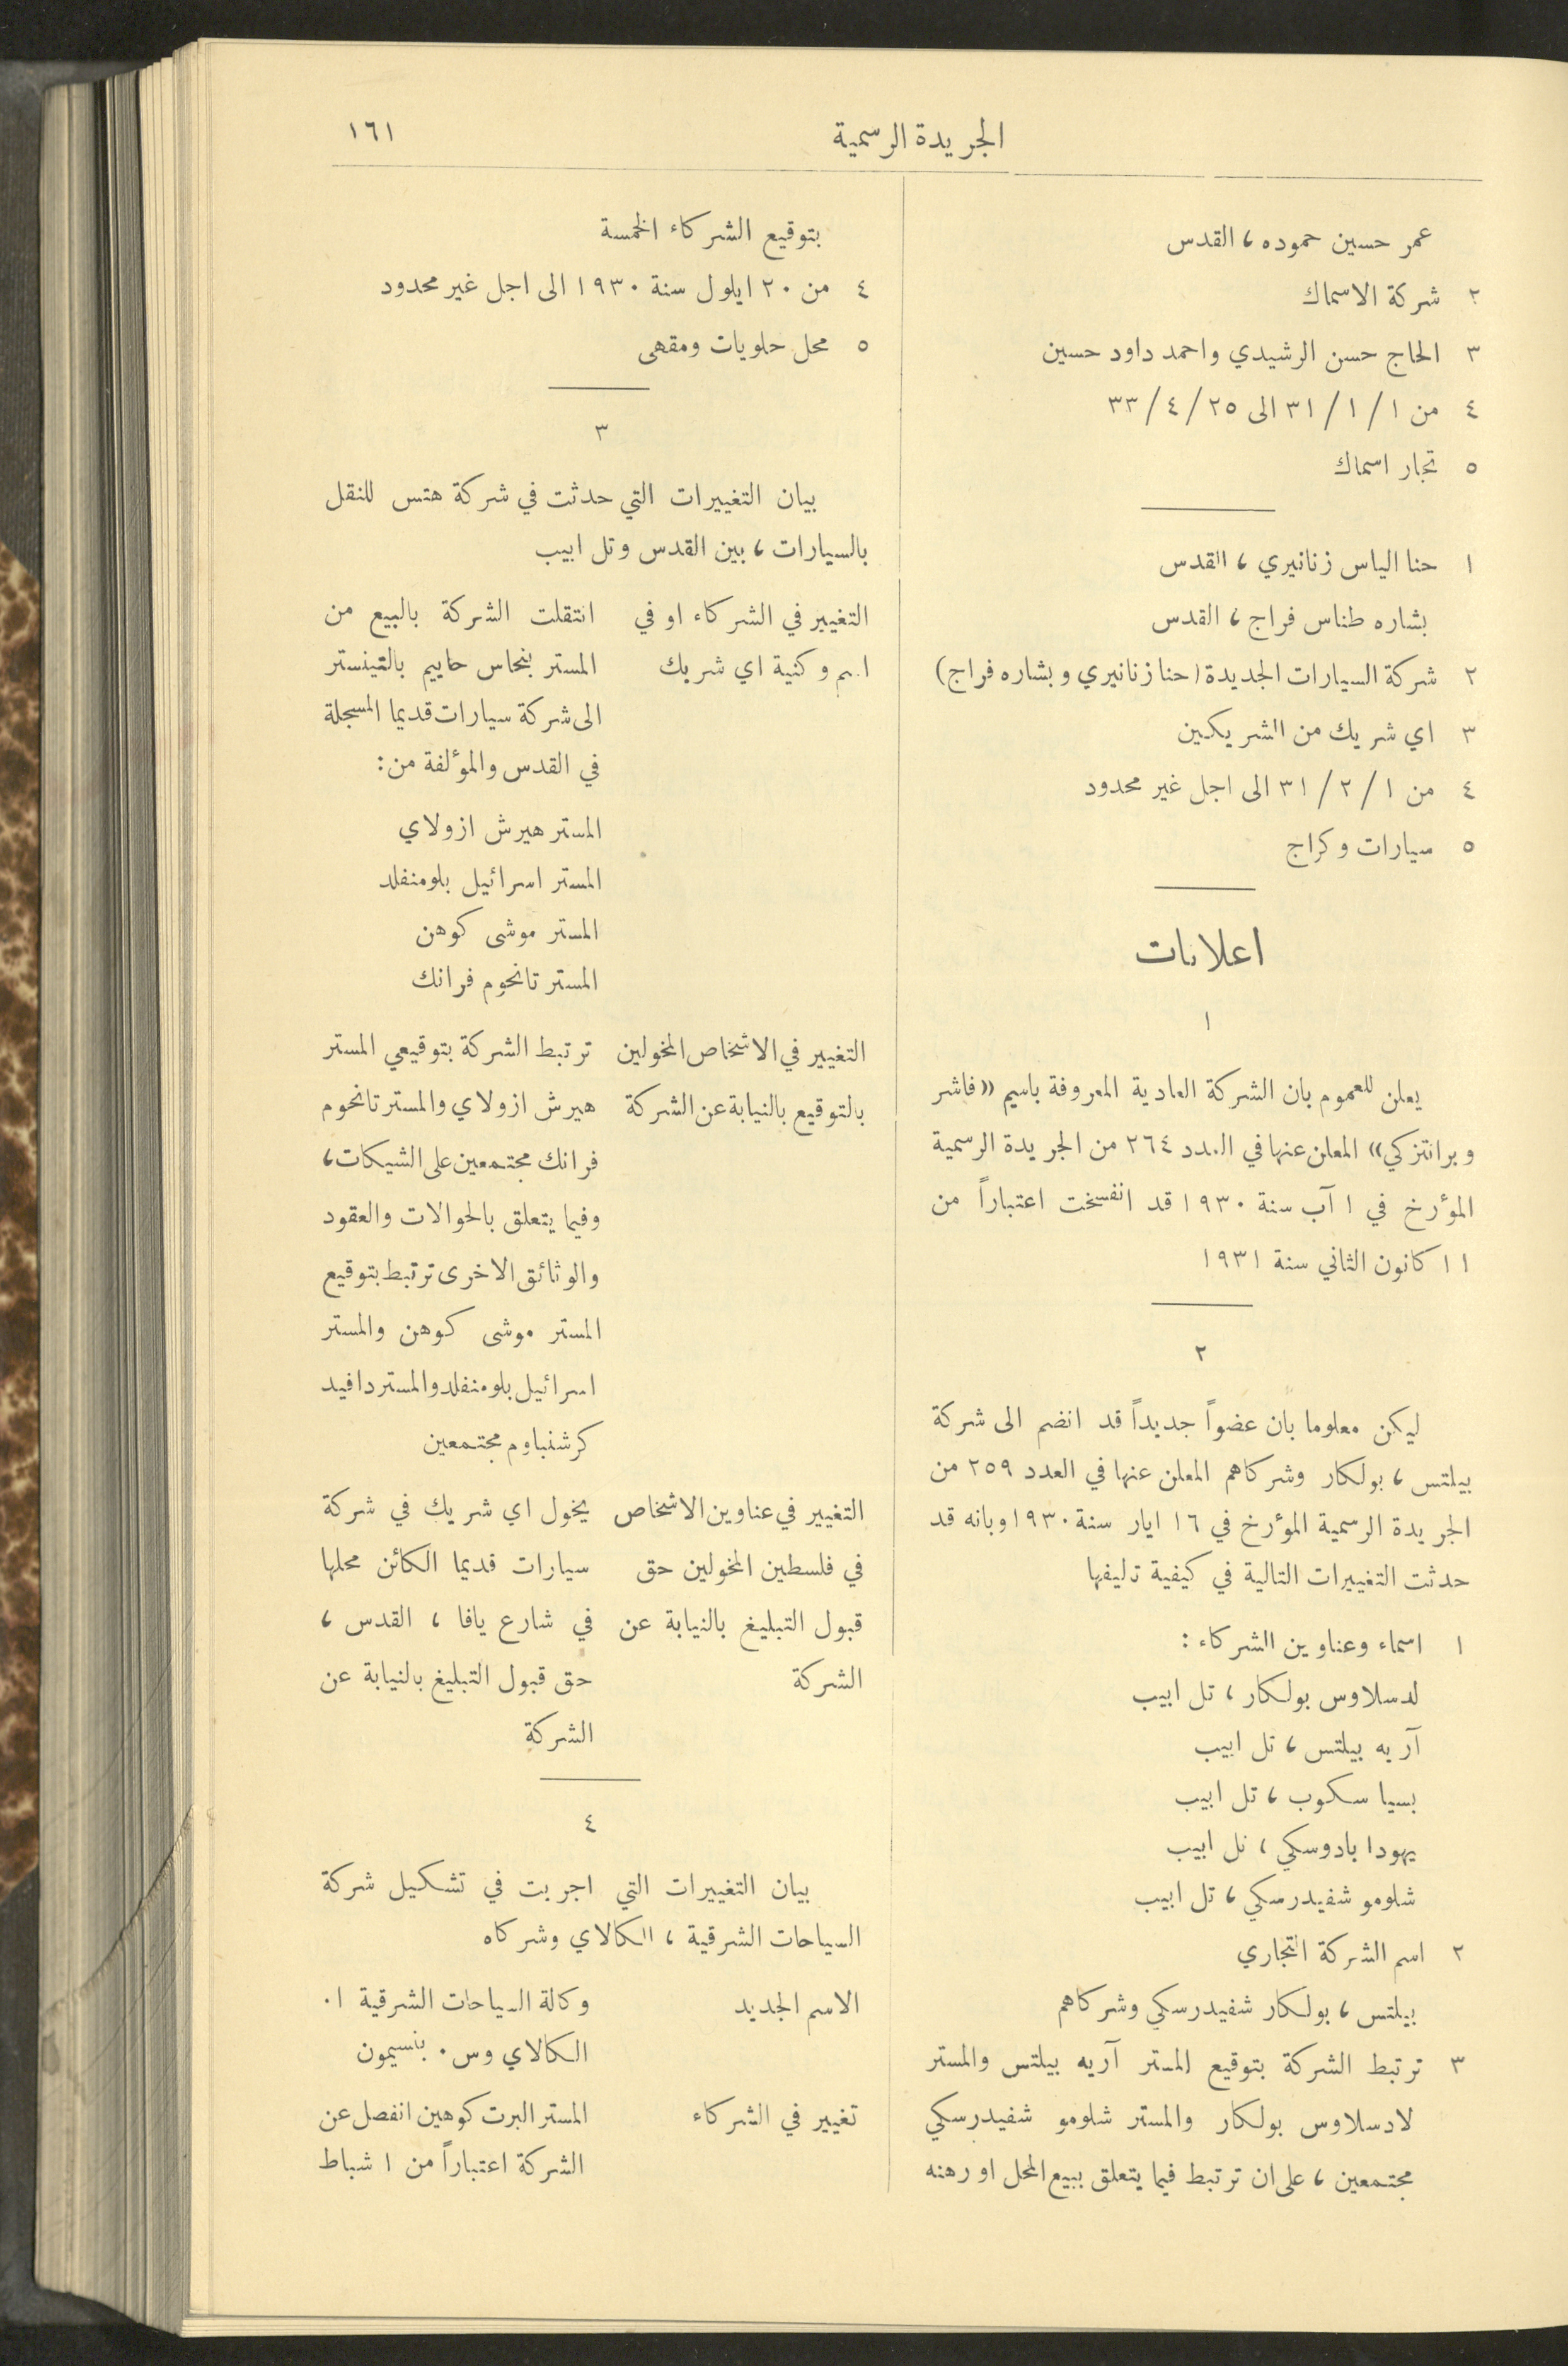 الجريدة الرسمية
١٦١
عمر حسين حموده، القدس
٢ شركة الاسماك
٣ الحاج حسن الرشيدي واحمد داود حسين
٤ من ١ / ١ / ٣١ الى ٢٥ / ٤ / ٣٣
٥ تجار اسماك
١ حنا الياس زنانيري، القدس
بشاره طناس فراج، القدس
٢ شركة السيارات الجديدة (حنا زنانيري وبشاره فراج)
٣ اي شريك من الشريكين
٤ من ١ / ٢ / ٣١ الى اجل غير محدود
٥ سيارات وكراج
اعلانات
١
يعلن للعموم بان الشركة العادية المعروفة باسيم «فاشر
وبرانتزكي» المعلن عنها في العدد ٢٦٤ من الجريدة الرسمية
المؤرخ في ١ آب سنة ١٩٣٠ قد انفسخت اعتباراً من
١١ كانون الثاني سنة ١٩٣١
٢
ليكن معلوما بان عضواً جديداً قد انضم الى شركة
بيلتس، بولكار وشركاهم المعلن عنها في العدد ٢٥٩ من
الجريدة الرسمية المؤرخ في ١٦ ايار سنة ١٩٣٠ وبانه قد
حدثت التغييرات التالية في كيفية تاليفها
١ اسماء وعناوين الشركاء :
لدسلاوس بولكار، تل ابيب
آريه بيلتس، تل ابيب
بسيا سكوب، تل ابيب
يهودا بادوسكي، تل ابيب
شلومو شفيدرسكي، تل ابيب
٢ اسم الشركة التجاري
بيلتس، بولكار شفيدرسكي وشركاهم
٣ ترتبط الشركة بتوقيع المستر آريه بيلتس والمستر
لادسلاوس بولكار والمستر شلومو شفيدرسكي
مجتمعين، على ان ترتبط فيما يتعلق ببيع المحل او رهنه
بتوقيع الشركاء الخمسة
٤ من ٢٠ ايلول سنة ١٩٣٠ الى اجل غير محدود
٥ محل حلويات ومقهى
٣
بيان التغييرات التي حدثت في شركة هتس للنقل
بالسيارات، بين القدس وتل ابيب
التغيير في الشركاء او في انتقلت الشركة بالبيع من
اسم وكنية اي شريك المستر بنحاس حاييم بالتينستر
الى شركة سيارات قديما المسجلة
في القدس والمؤلفة من :
المستر هيرش ازولاي
المستر اسرائيل بلومنفلد
المستر موشى كوهن
المستر تانحوم فرانك
التغيير في الاشخاص المخولين ترتبط الشركة بتوقيعي المستر
بالتوقيع بالنيابة عن الشركة هيرش ازولاي والمستر تانحوم
فرانك مجتمعين على الشيكات،
وفيما يتعلق بالحوالات والعقود
والوثائق الاخرى ترتبط بتوقيع
المستر موشى كوهن والمستر
اسرائيل بلومنفلد والمستر دافيد
كرشنباوم مجتمعين
التغيير في عناوين الاشخاص يخول اي شريك في شركة
في فلسطين المخولين حق سيارات قديما الكائن محلها
قبول التبليغ بالنيابة عن في شارع يافا، القدس،
الشركة حق قبول التبليغ بالنيابة عن
الشركة
٤
بيان التغييرات التي اجريت في تشكيل شركة
السياحات الشرقية، الكالاي وشركاه
الاسم الجديد وكالة السياحات الشرقية ا.
الكالاي وس. بنسيمون
تغيير في الشركاء المستر البرت كوهين انفصل عن
الشركة اعتباراً من ١ شباط